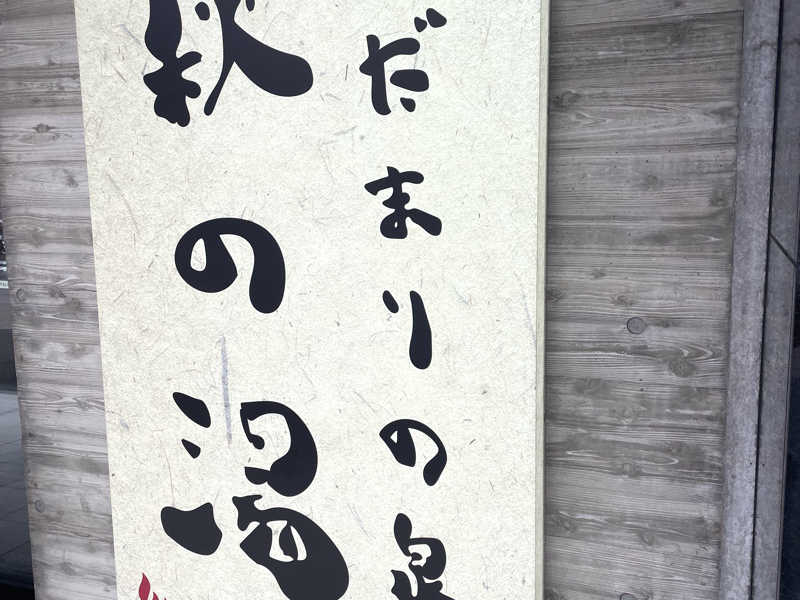 だまりの泉
萩の湯